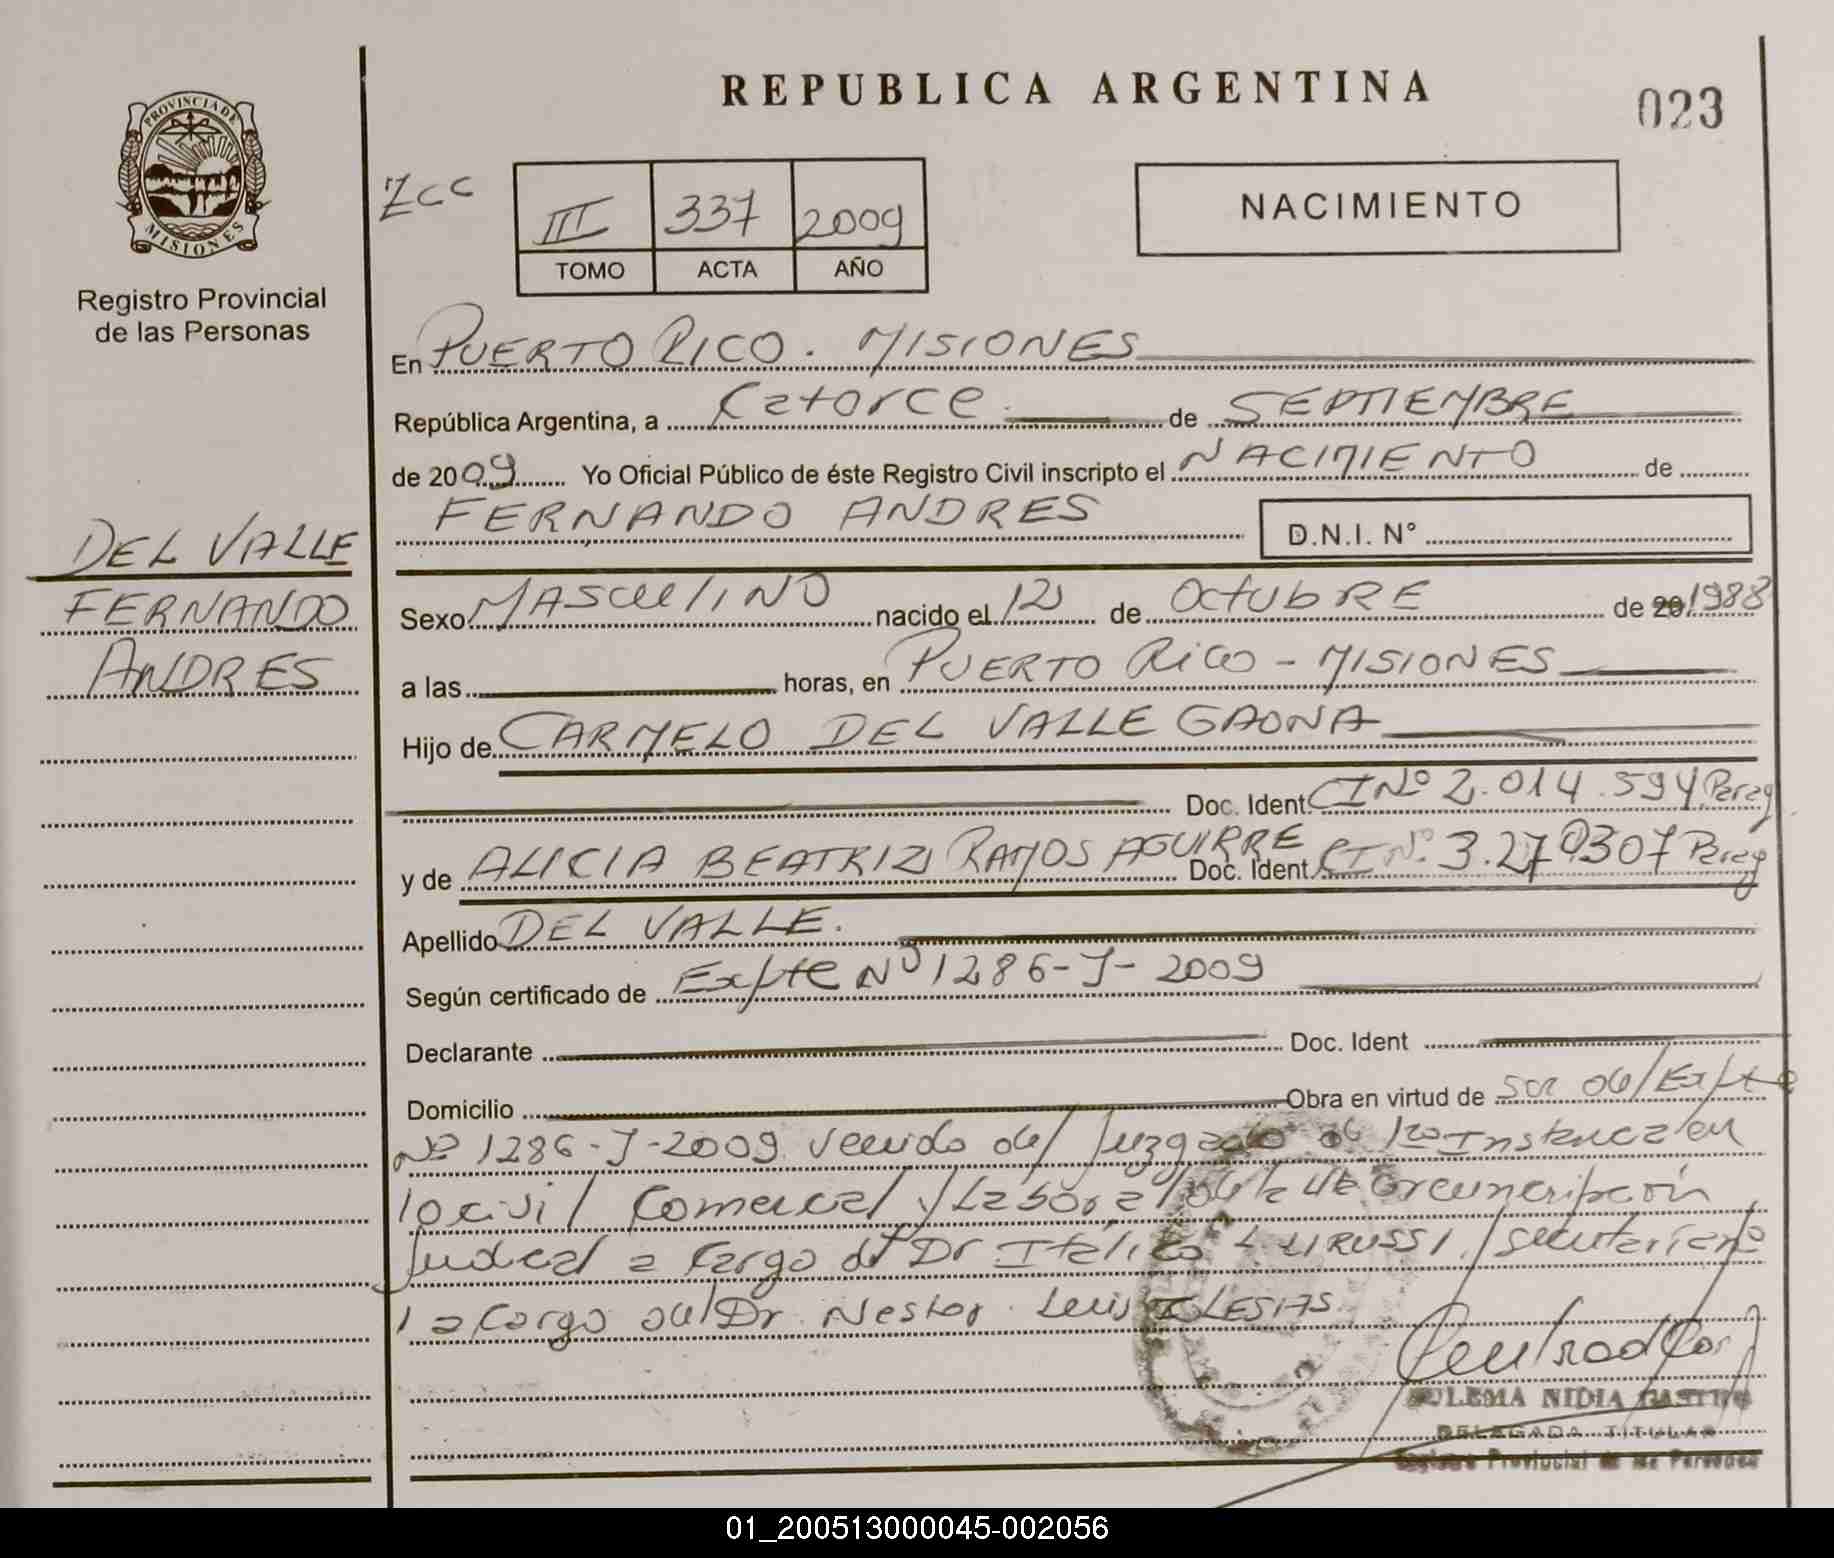 REPUBLICA ARGENTINA
023
PROVINCIA DE
MISIONES
Registro Provincial
de las Personas
Zcc
III 337 2009
TOMO ACTA AÑO
NACIMIENTO
En PUERTO RICO. MISIONES
República Argentina, a Catorce. de SEPTIEMBRE
de 2009 Yo Oficial Público de éste Registro Civil inscripto el NACIMIENTO de
FERNANDO ANDRES D.N.I. N°
DEL VALLE
FERNANDO
ANDRES
Sexo MASCULINO nacido el 12 de OctubRE de 20 1988
a las horas, en PUERTO RICO - MISIONES
Hijo de CARMELO DEL VALLE GAONA
Doc. Ident. CI Nº 2.014.594 Parag
y de ALICIA BEATRIZ RAMOS AGUIRRE Doc. Ident CI Nº 3.270307 Parag
Apellido DEL VALLE.
Según certificado de Expte Nº 1286-J-2009
Declarante Doc. Ident
Domicilio Obra en virtud de del Expte
Nº 1286-J-2009 venido del Juzgado de 1ra Instancia en
lo civil Comercial y Laboral de la Circuncripción
Judicial a cargo del Dr Itálico secretaria
1 a Cargo del Dr. Nestor Luis IGLESIAS
ZULEMA NIDIA CASTRO
DELEGADA TITULAR
Registro Provincial de las Personas
01_200513000045-002056